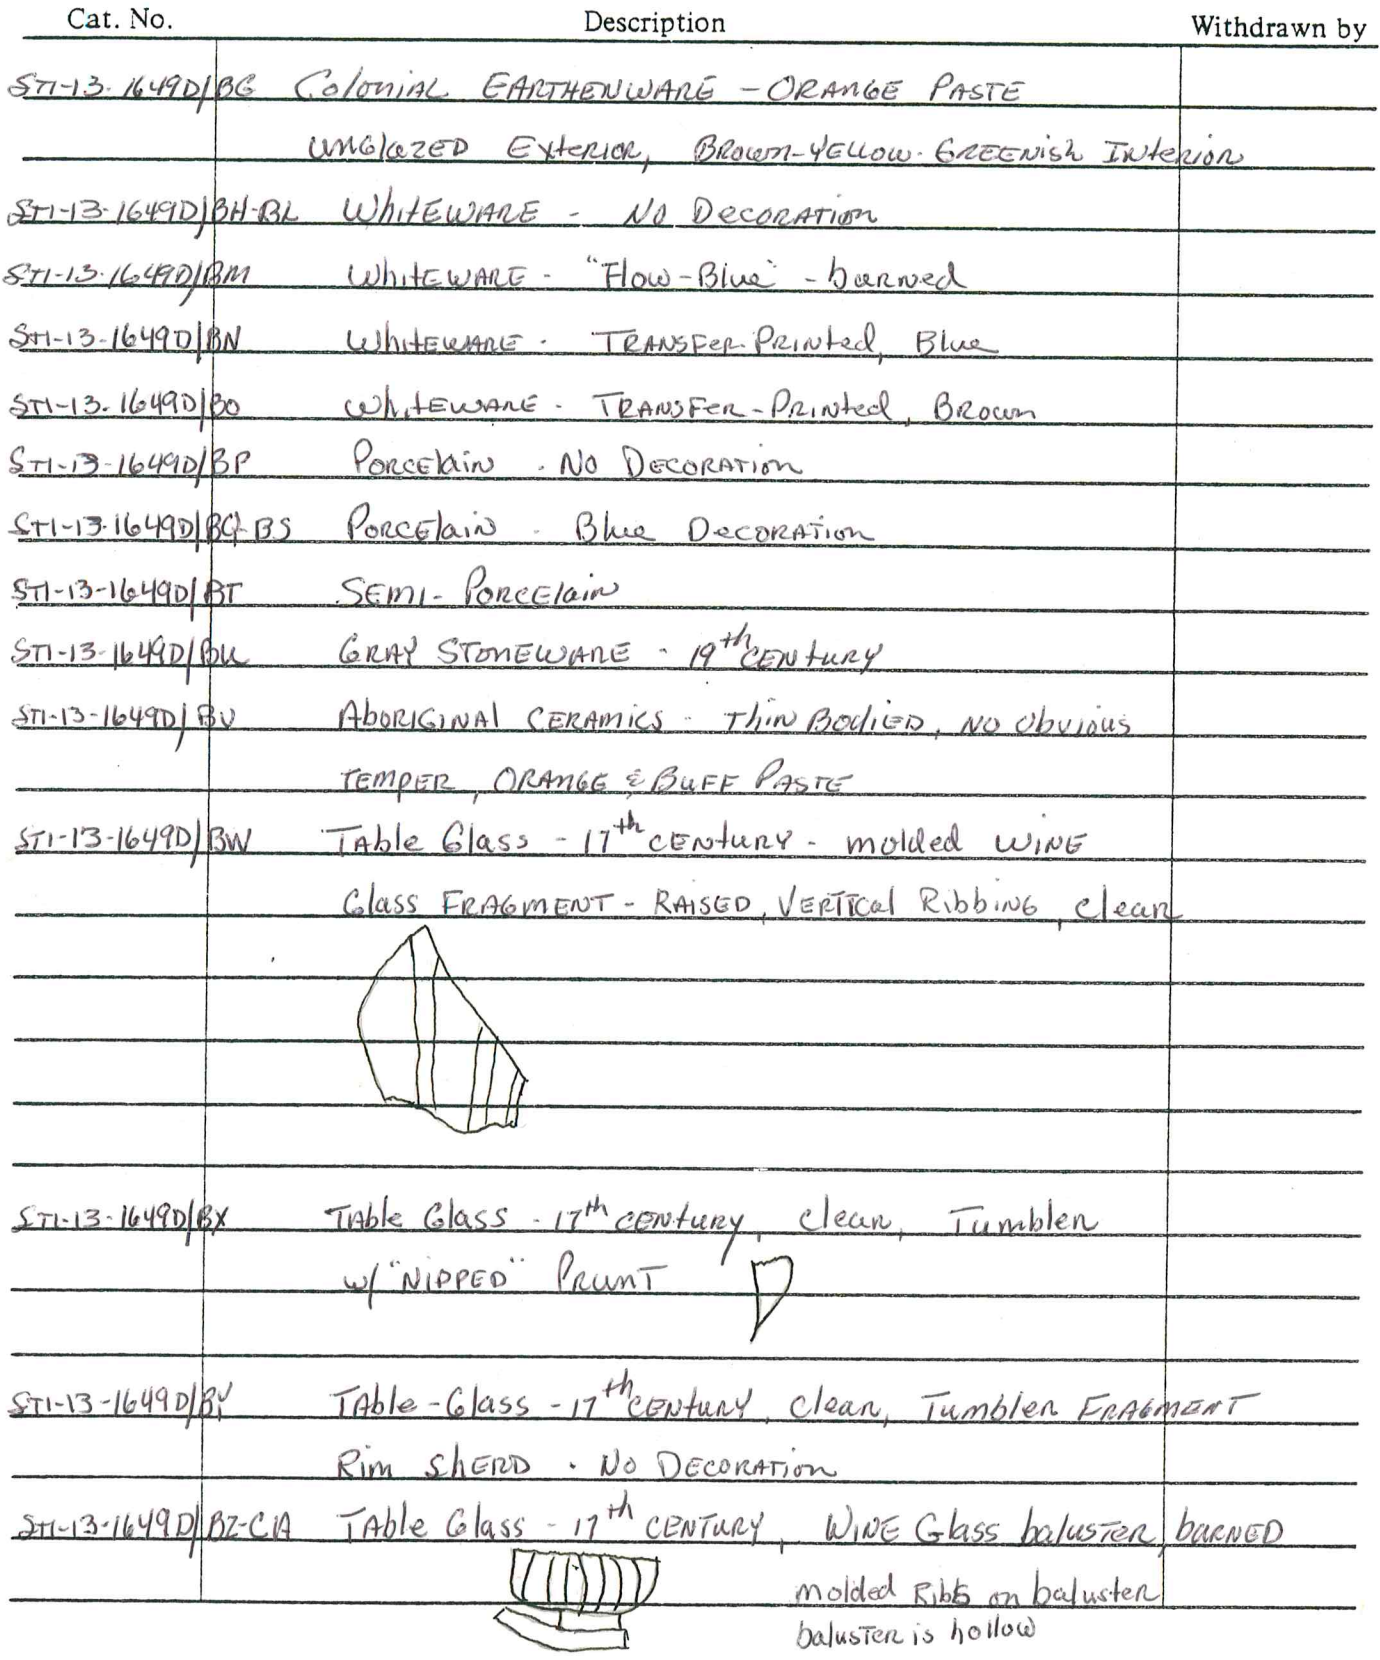 Cat. No. Description Withdrawn by
ST1-13-1649D/BG Colonial EARTHENWARE - ORANGE PASTE
unglazed Exterior, Brown-Yellow-Greenish Interior
ST1-13-1649D/BH-BL WhitEWARE - No Decoration
ST1-13-1649D/BM WhitEWARE - "Flow-Blue" - burned
ST1-13-1649D/BN WhitEWARE - TRANSFER-Printed, Blue
ST1-13-1649D/BO WhitEWARE - TRANSFER-Printed, Brown
ST1-13-1649D/BP Porcelain - No Decoration
ST1-13-1649D/BQ-BS Porcelain - Blue Decoration
ST1-13-1649D/BT SEMI-Porcelain
ST1-13-1649D/BU GRAY STONEWARE - 19th CENtury
ST1-13-1649D/BV Aboriginal CERAMICS - thin Bodied, no obvious
TEMPER, ORANGE & BUFF PASTE
ST1-13-1649D/BW Table Glass - 17th CENTURY - molded WINE
Glass FRAGMENT - RAISED, VERTICAL Ribbing, clear
ST1-13-1649D/BX Table Glass - 17th CENtury, clear, Tumbler
w/ "NIPPED" PRUNT
ST1-13-1649D/BY Table-Glass - 17th CENtury, clear, Tumbler FRAGMENT
Rim SHERD - No Decoration
ST1-13-1649D/BZ-CA Table Glass - 17th CENTURY, WINE Glass baluster, burned
molded Ribs on baluster
baluster is hollow